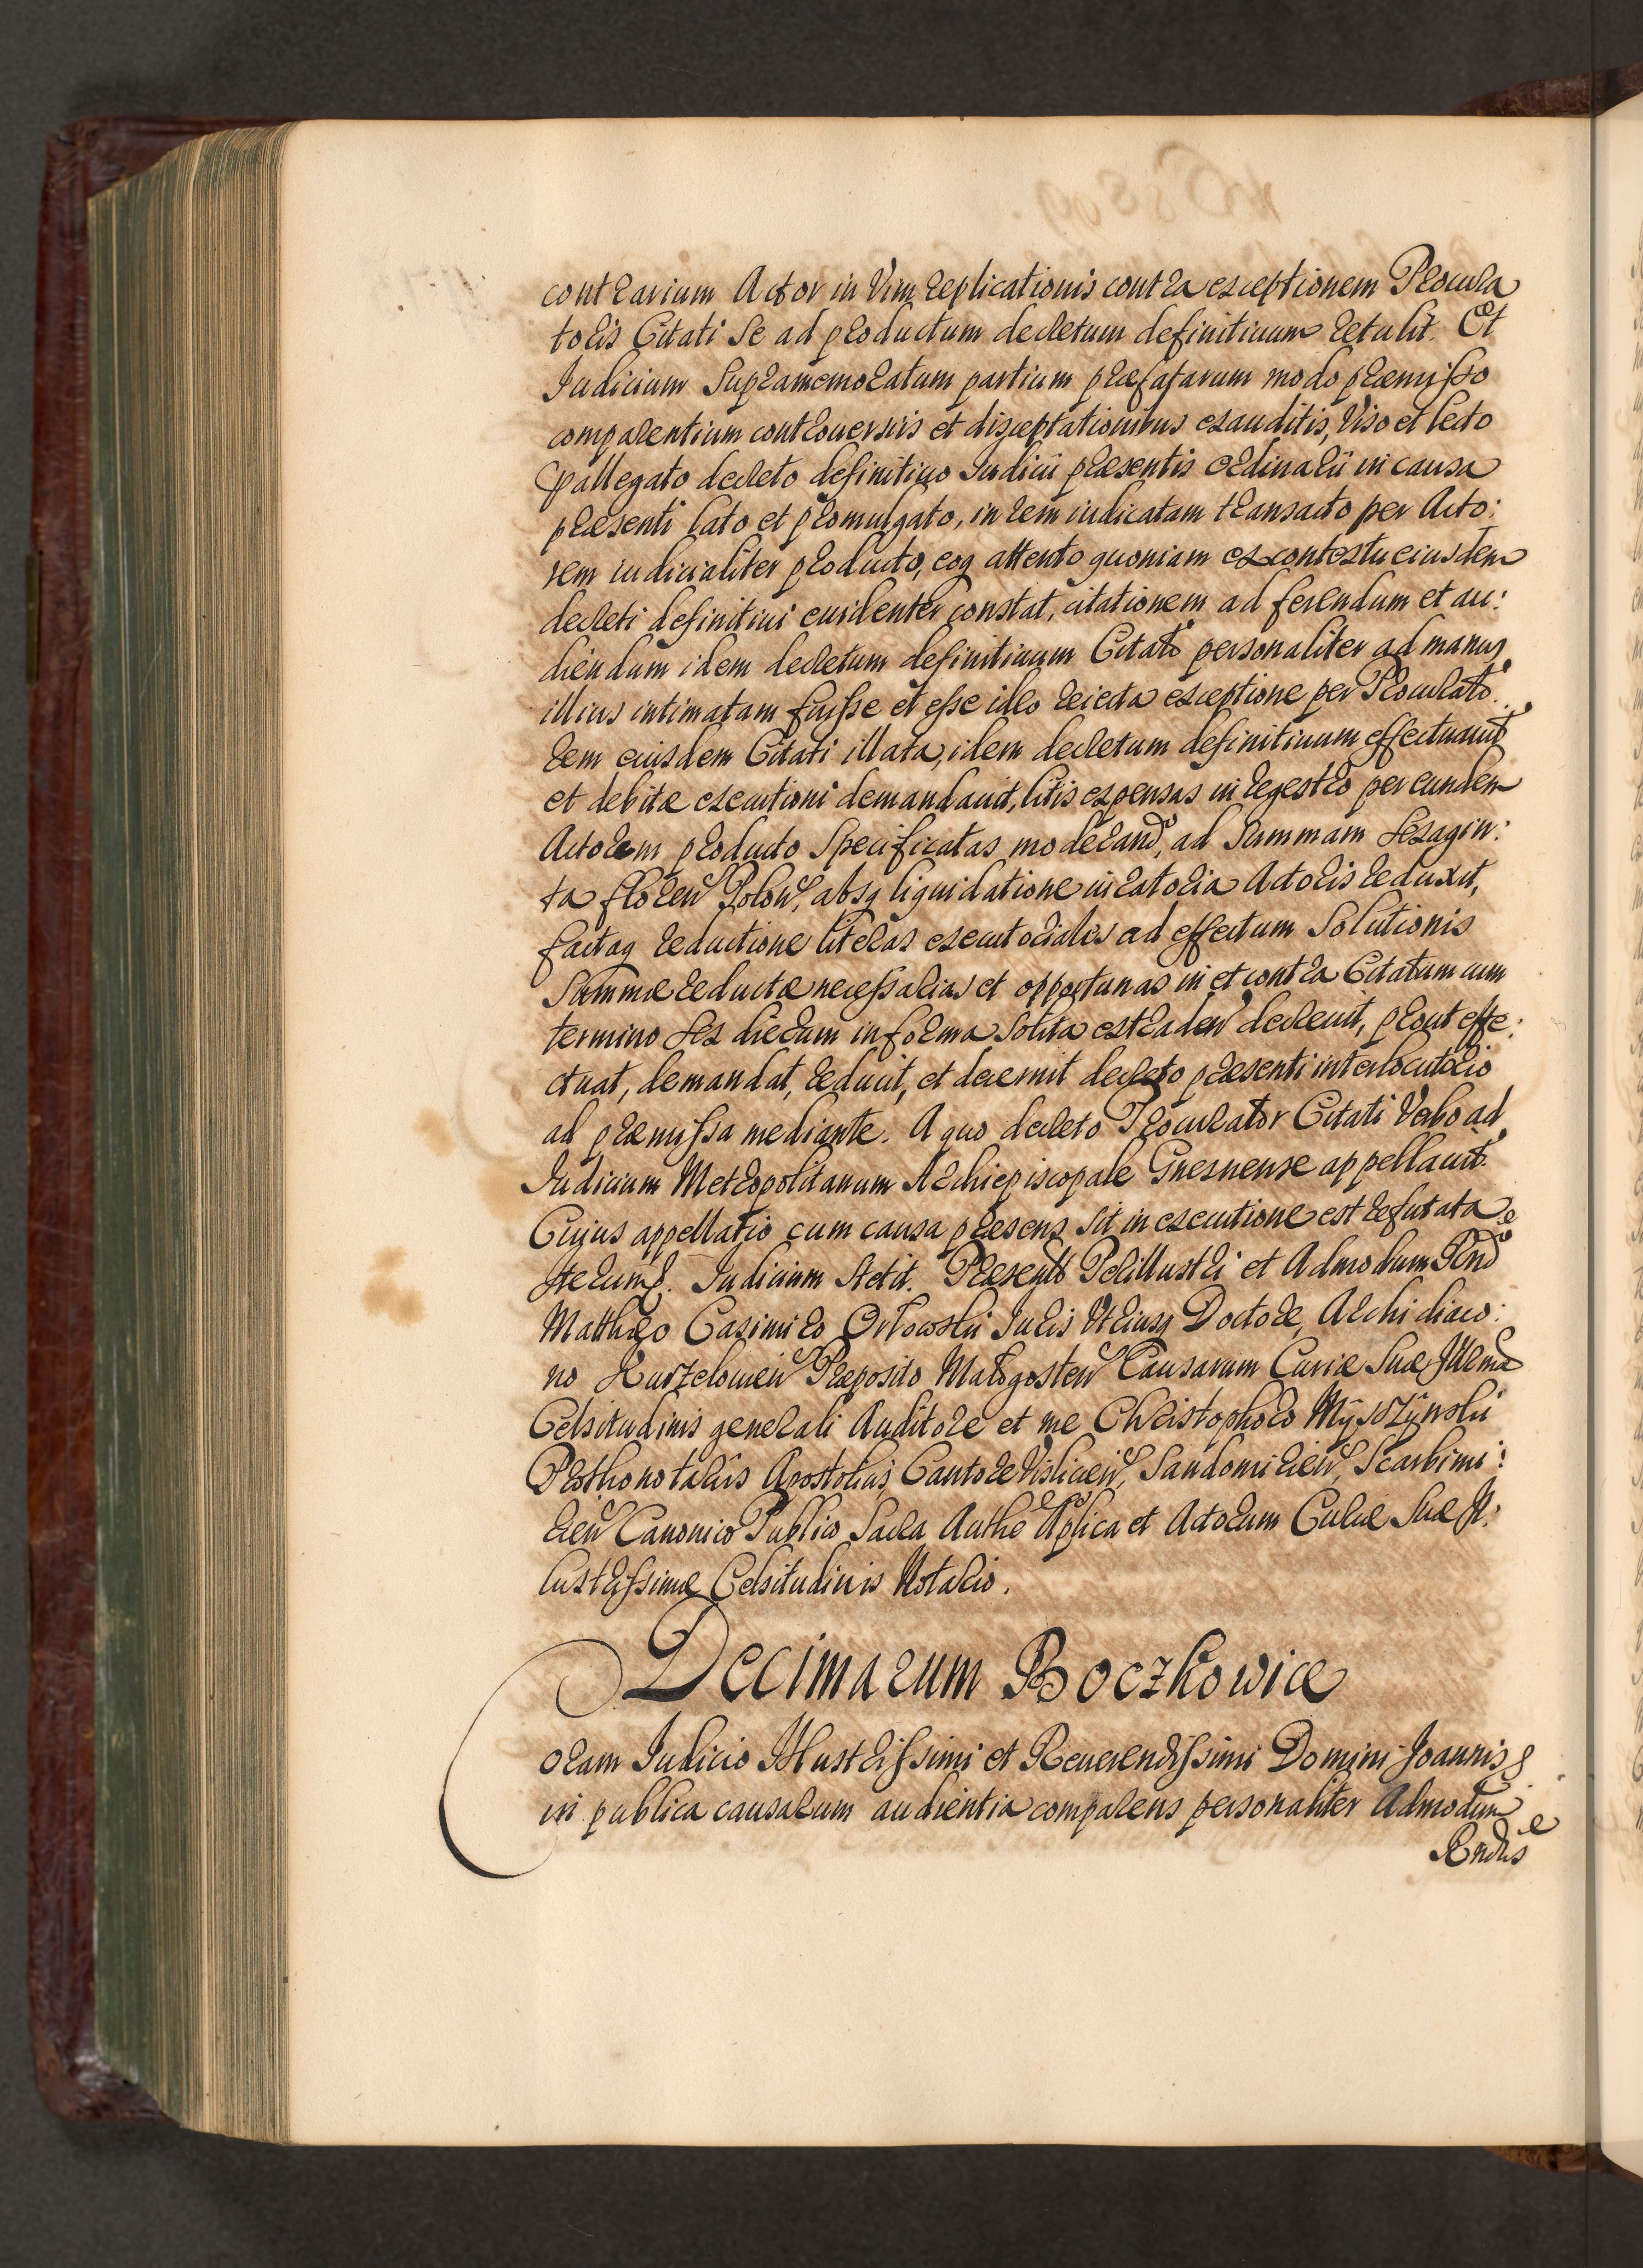 contrarium Actor in Vim replicationis contra exceptionem Procura
toris Citati se ad productum decretum definitiuum retulit. Et
Iudicium Supramemoratum partium præfatarum modo præmisso
comparentium controuersiis et disceptationibus exauditis, Viso et lecto
allegato decreto definitiuo Iudicii præsentis ordinarii in causa
præsenti lato et promulgato, in rem iudicatam transacto per Acto:
rem iudicialiter producto, eoq attento quoniam ex contextu eiusdem
decreti definitiui euidenter constat, citationem ad ferendum et au:
diendum idem decretum definitiuum Citato personaliter ad manus
illius intimatam fuisse et esse ideo reiecta exceptione per Procurato:
rem eiusdem Citati illata, idem decretum definitiuum effectuauit
et debitæ executioni demandauit, litis expensas in regestro per eundem
Actorem producto Specificatas moderand, ad Summam Sexagin:
ta floren Polon, absq liquidatione iuratoria Actoris reduxit,
factaq reductione literas executoriales ad effectum Solutionis
Summæ reductæ necessarias et opportunas in et contra Citatum cum
termino Sex dierum in forma Solita extraden decreuit, prout effe:
ctuat, demandat, reducit, et decernit decreto præsenti interlocutorio
ad præmissa mediante. A quo decreto Procurator Citati Verbo ad
Iudicium Metropolitanum Archiepiscopale Gnesnense appellauit.
Cuius appellatio cum causa præsens Sit in executione est refutata
Iudicium Stetit. Præsentib Perillustri et Admodum Rndo
Matthæo Casimiro Orłowski Iuris Vtriusq Doctore, Archidiaco:
no Kurzelouien Præposito Małogosten Causarum Curiæ Suæ Illmæ
Celsitudinis generali Auditore et me Christophoro Mÿszÿnski
Prothonotariis Apostolicis, Cantore Vislicien, Sandomirien, Scarbimi:
rien Canonico Publico Sacra Authe Aplica et Actorum Curiæ Suæ Il:
lustrissimæ Celsitudinis Notario.
Decimarum Boczkowice
Coram Iudicio Illustrissimi et Reuerendissimi Domini Joannis
in publica causarum audientia comparens personaliter Admodum
Rndus